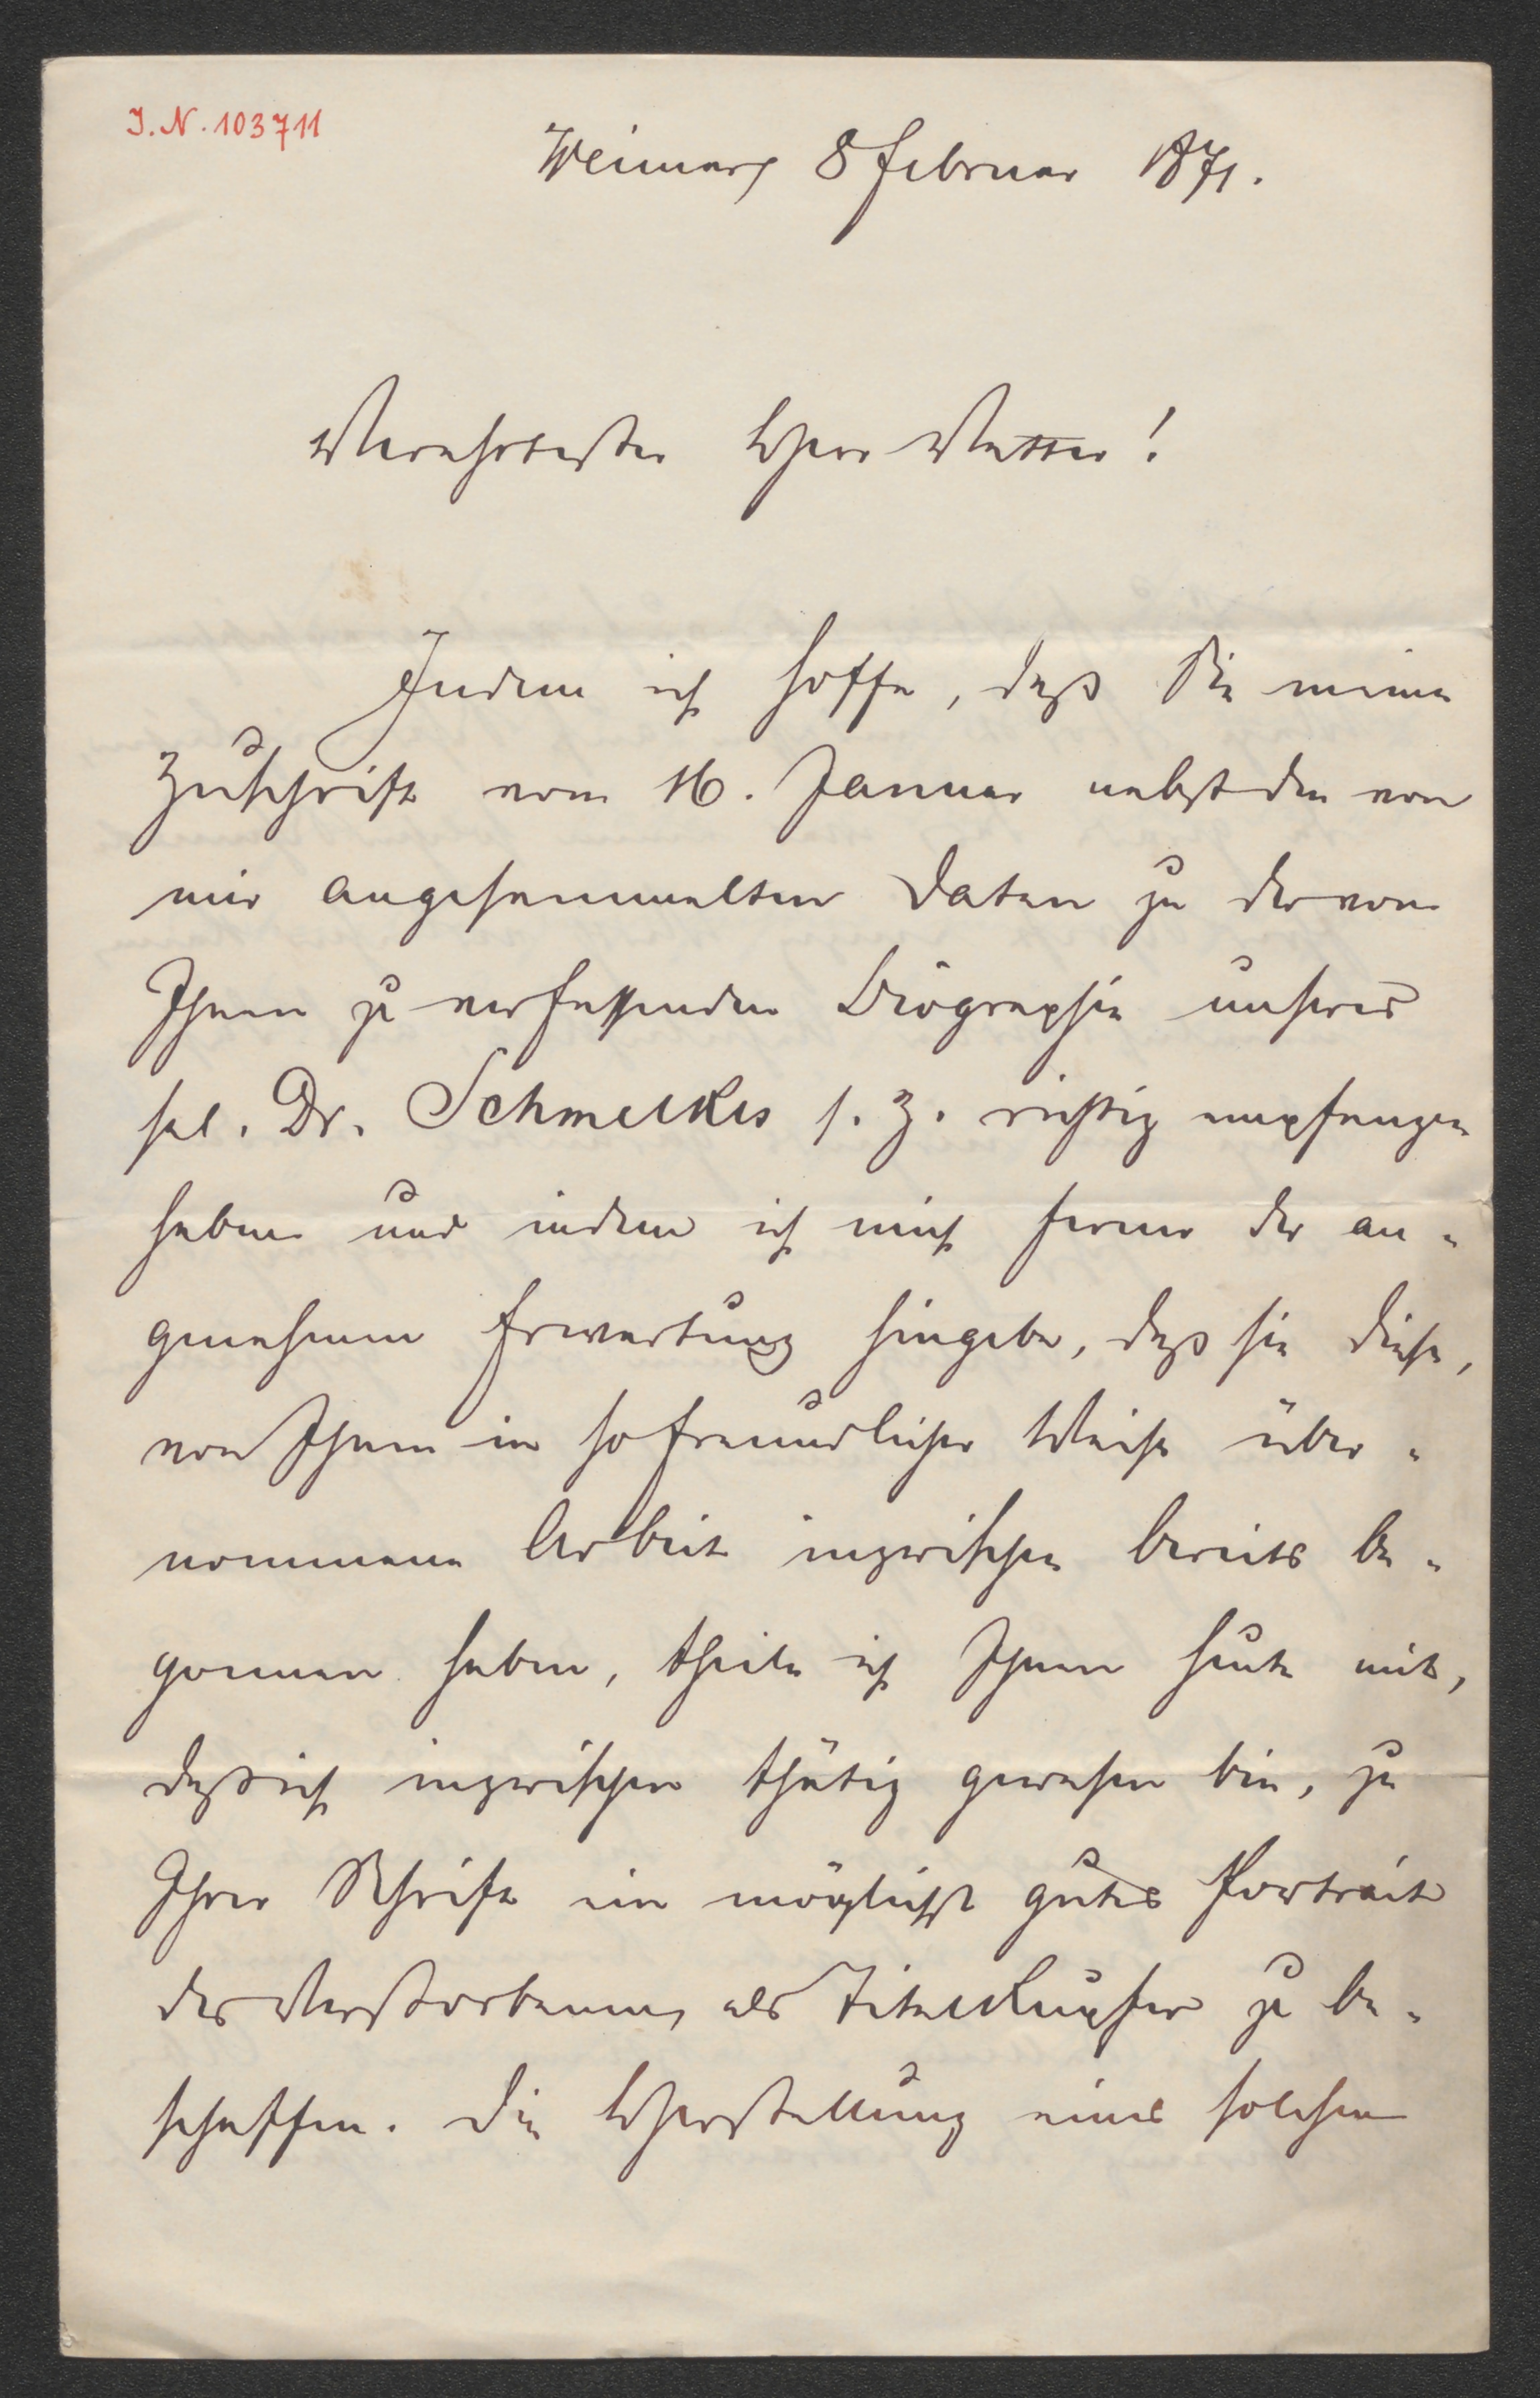 I. N. 103711
Weimar, 8 Februar 1871.
Verehrtester Herr Vetter!
Indem ich hoffe, daß Sie meine
Zuschrift vom 16. Januar nebst den von
mir angesammelten Daten zu der von
Ihnen zu verfassenden Biographie unseres
sel. Dr. Schmelkes s. Z. richtig empfangen
haben und indem ich mich ferner der an-
genehmen Erwartung hingebe, daß sie diese,
von Ihnen in so freundlicher Weise über-
nommene Arbeit inzwischen bereits be-
gonnen haben, theile ich Ihnen heute mit,
daß ich inzwischen thätig gewesen bin, zu
Ihrer Schrift ein möglichst gutes Portrait
des Verstorbenen, als Titelkupfer zu be-
schaffen. Die Herstellung eines solchen